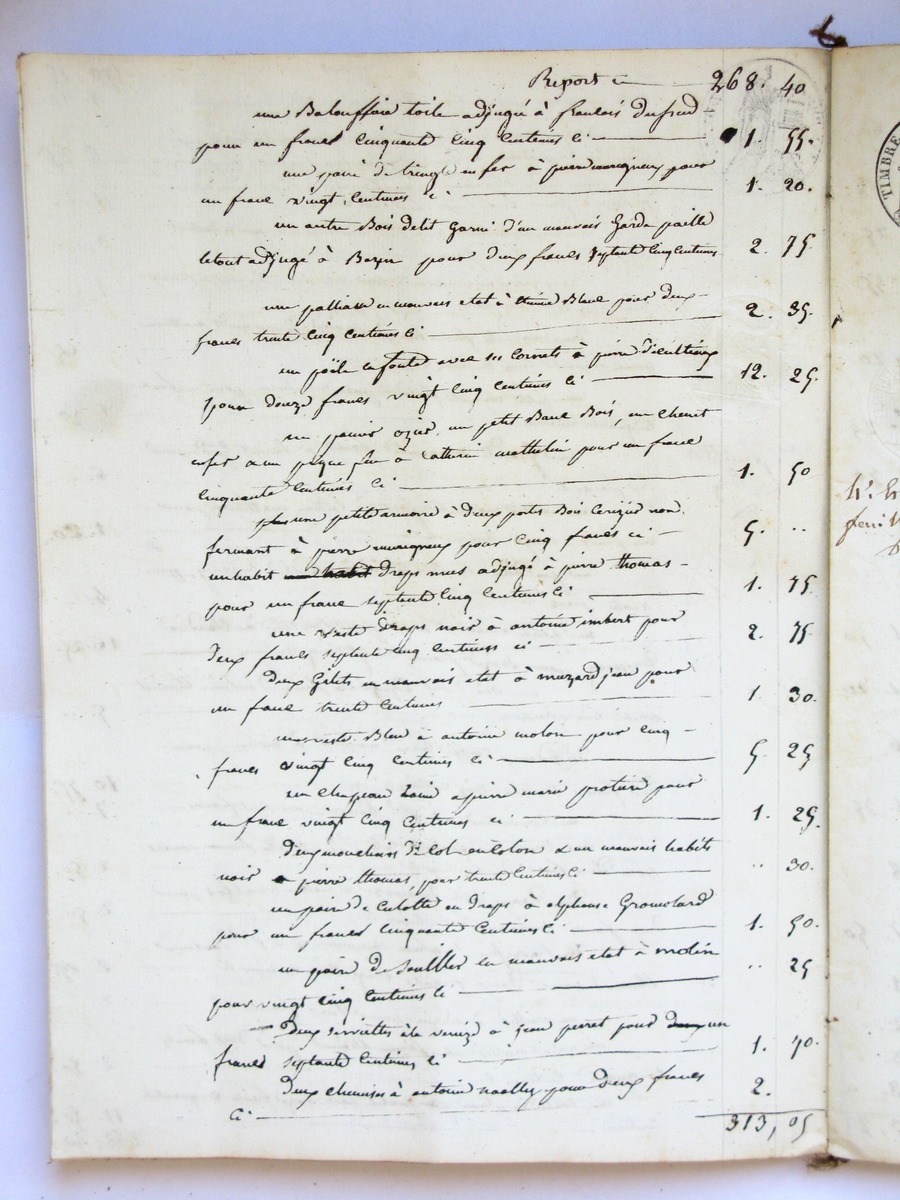 Report ci 268. 40
une Baloufiere toile adjugé à francois dufrene
pour un franc cinquante cinq centimes ci 1. 55.
une paire de tringle en fer à pierre murigneux pour
un franc vingt centimes ci 1. 20.
un autre Bois delit garni d'un mauvais garde paille
letout adjugé à Bazin pour deux francs septante cinq centimes 2. 75
une palliasse en mauvais etat à Blanc pour deux
francs trente cinq centimes ci 2. 35.
un poële en fonte avec ses cornets à pierre
pour douze francs vingt cinq centimes ci 12. 25.
un panier ozier, un petit Banc Bois, un chenet
en fer & un pique feu à Catherine mathelin pour un franc
cinquante centimes ci 1. 50
plus une petite armoire à deux portes Bois cerizier non
fermant à pierre murigneux pour cinq francs ci 5. ..
un habit draps adjugé à pierre thomas
pour un franc septante cinq centimes ci 1. 75
une veste draps noir à antoine imbert pour
deux francs septante cinq centimes ci 2. 75
deux Gilets en mauvais etat à muzard jean pour
un franc trente centimes 1. 30.
une veste Bleu à antoine molon pour cinq
francs vingt cinq centimes ci 5. 25
un chapeau laine a pierre marie protière pour
un franc vingt cinq centimes ci 1. 25.
deux mouchoirs de col en coton & un mauvais habits
noir a pierre thomas, pour trente centimes ci .. 30.
un paire de culotte en draps à alphonse Gromolard
pour un francs cinquante centimes ci 1. 50.
un paire de soulllier en mauvais etat à molin
pour vingt cinq centimes ci .. 25
deux serviettes à la venize à jean perret pour deux un
francs septante centimes ci 1. 70.
deux chemises à antoine pour deux francs
ci 2.
313, 05
TIMBRE